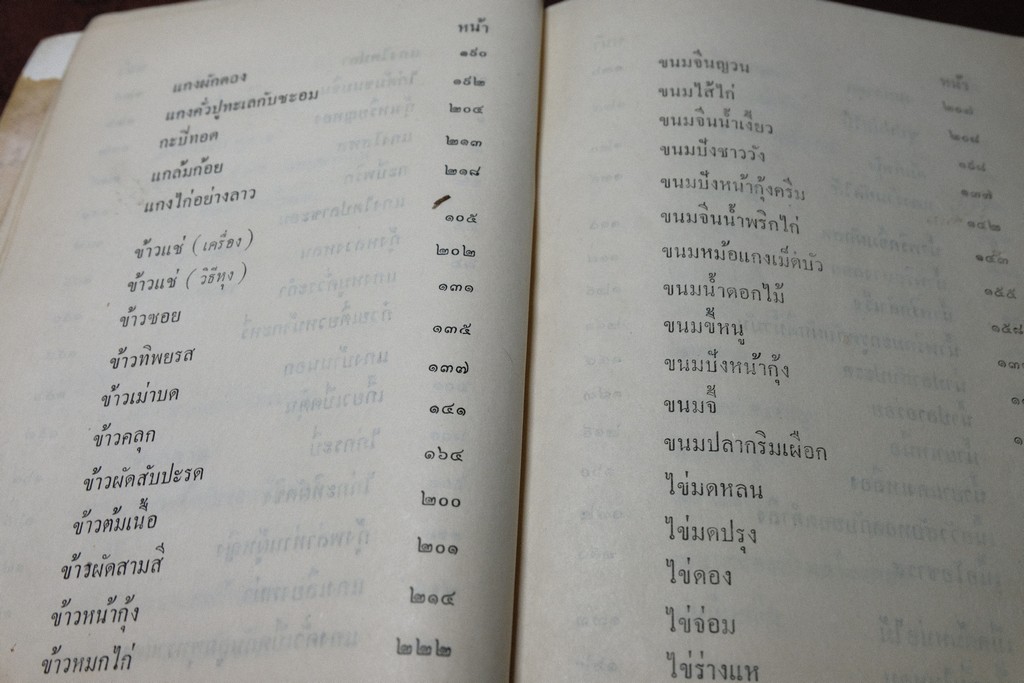 หน้า
แกงผักดอง ๑๙๐
แกงคั่วปูทะเลกับชะอม ๑๙๒
กะบี่ทอด ๒๐๔
แกล้มก้อย ๒๑๓
แกงไก่อย่างลาว ๒๑๘
ข้าวแช่ (เครื่อง) ๑๐๕
ข้าวแช่ (วิธีหุง) ๒๐๒
ข้าวซอย ๑๓๑
ข้าวทิพยรส ๑๓๕
ข้าวเม่าบด ๑๓๗
ข้าวคลุก ๑๔๑
ข้าวผัดสับปะรด ๑๖๔
ข้าวต้มเนื้อ ๒๐๐
ข้าวผัดสามสี ๒๐๑
ข้าวหน้ากุ้ง ๒๑๔
ข้าวหมกไก่ ๒๒๒
หน้า
ขนมจีนญวน
ขนมไส้ไก่
ขนมจีนน้ำเงี้ยว
ขนมปังชาววัง ๑๓๗
ขนมปังหน้ากุ้งครีบ ๑๔๒
ขนมจีนน้ำพริกไก่ ๑๔๓
ขนมหม้อแกงเม็ดบัว ๑๕๕
ขนมน้ำดอกไม้
ขนมขี้หนู
ขนมปังหน้ากุ้ง
ขนมจี้
ขนมปลากริมเผือก
ไข่มดหลน
ไข่มดปรุง
ไข่ดอง
ไข่จ่อม
ไข่ร่างแห